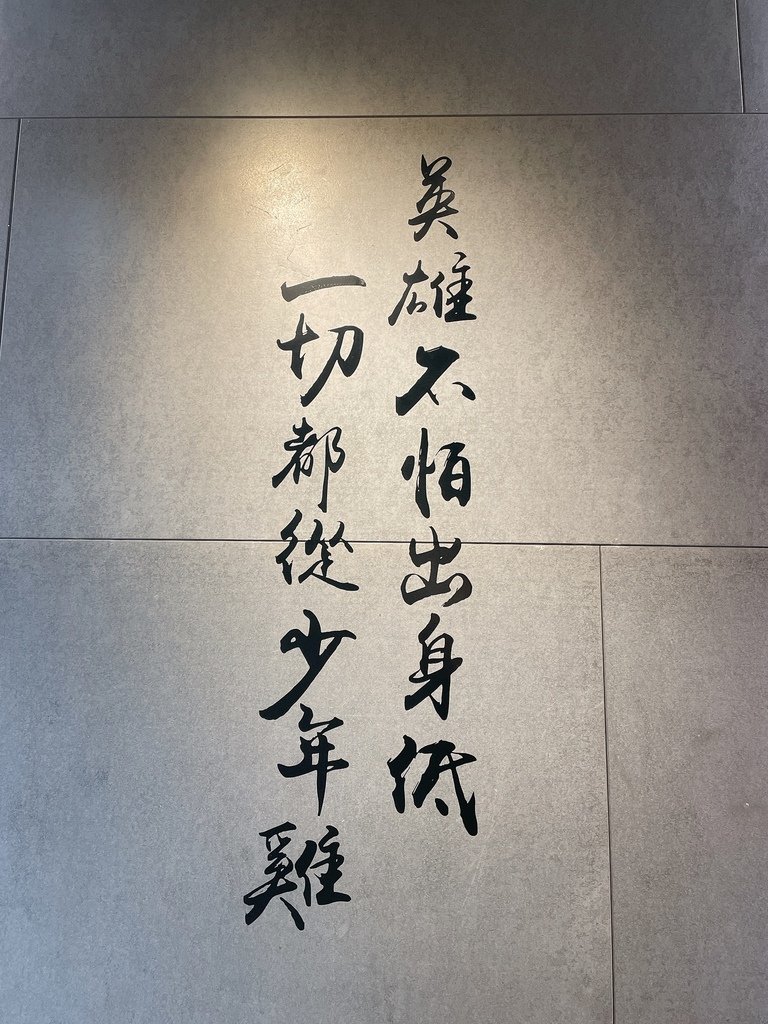 英雄不怕出身低
一切都從少年雞